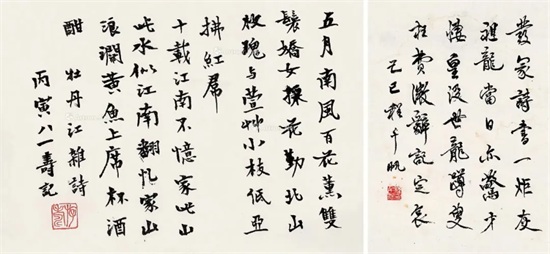 五月南風百花薰雙
鬟嬌女採花勤北山
玫瑰与萱艸小枝低亞
拂紅裙
十載江南不憶家此山
此水似江南翻憶家山
浪濶黄魚上席杯酒
酣 牡丹江雜詩
丙寅八一壽記
發冢詩書一炬灰
祖龍當日亦驚才
皇没世龍蹲叟
枉費微辭説定哀
己巳程千帆